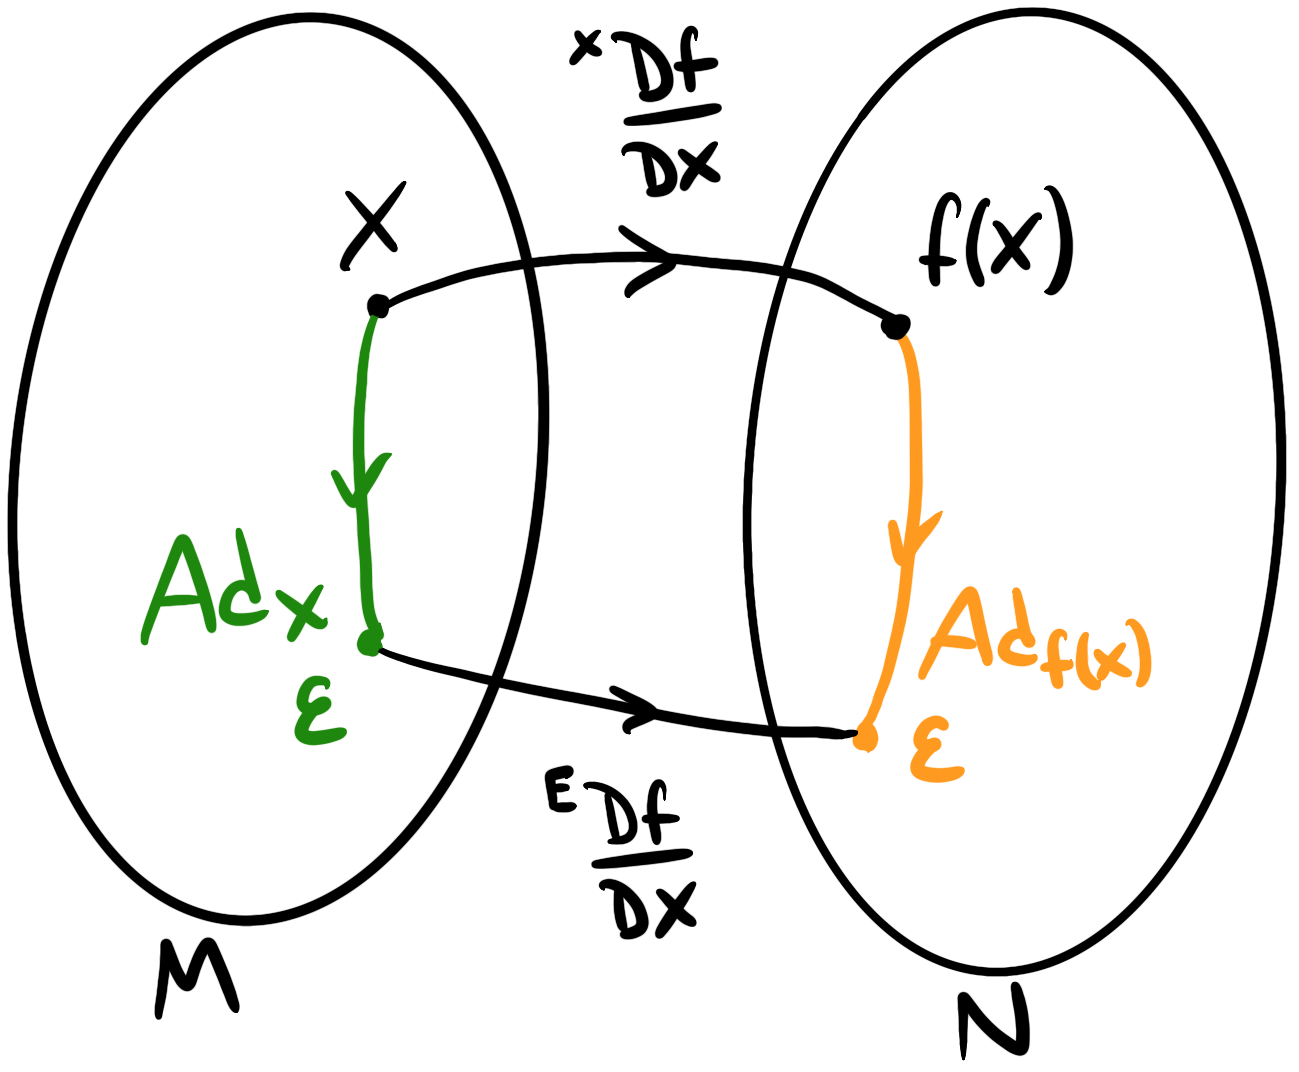 x Df
DX
X
f(X)
Adx
ε
Adf(x)
ε
E Df
DX
M
N